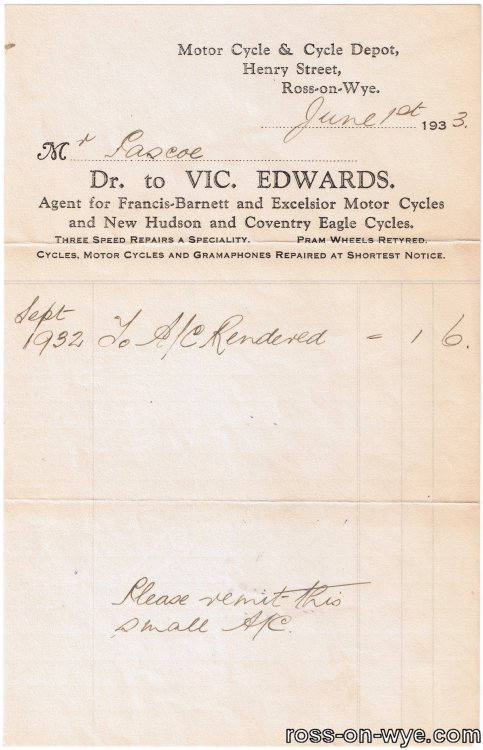 Motor Cycle & Cycle Depot,
Henry Street,
Ross-on-Wye.
June 1st 1933.
Mr Pascoe
Dr. to VIC. EDWARDS.
Agent for Francis-Barnett and Excelsior Motor Cycles
and New Hudson and Coventry Eagle Cycles.
THREE SPEED REPAIRS A SPECIALITY. PRAM WHEELS RETYRED.
CYCLES, MOTOR CYCLES AND GRAMAPHONES REPAIRED AT SHORTEST NOTICE.
Sept
1932 To A/C Rendered = 1 6.
Please remit this
small A/C.
ross-on-wye.com